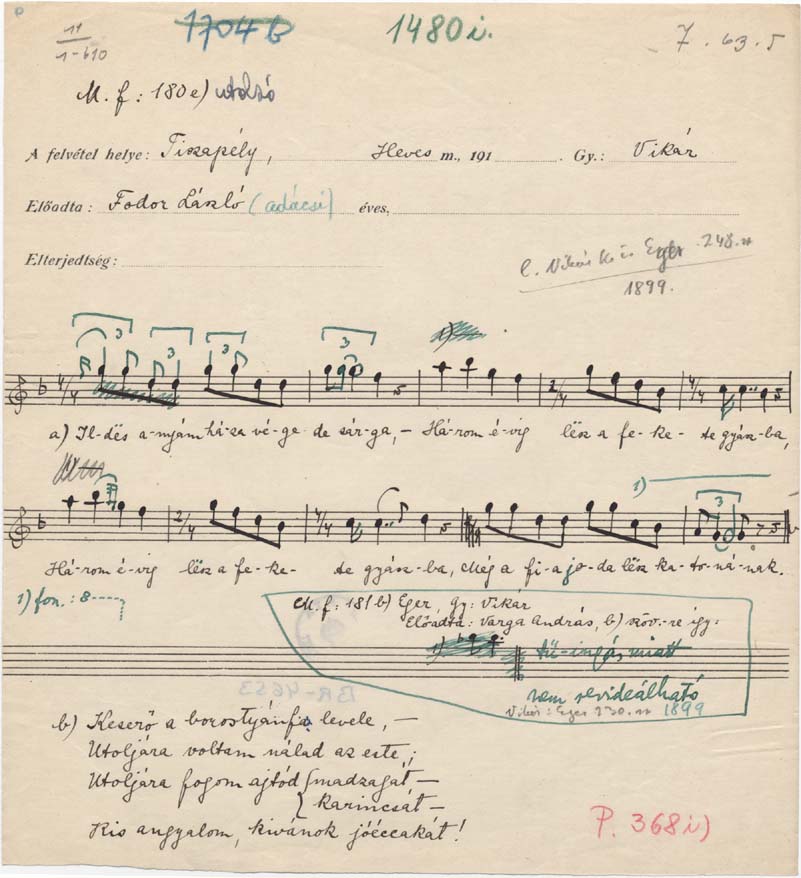 11
1-610
1704 b
1480 i.
7. 63. 5
M. f: 180e) utolsó
A felvétel helye: Tiszapély, Heves m., 191 Gy.: Vikár
Előadta: Fodor László (adácsi) éves,
Elterjedtség:
l. Vikár Eger 248.
1899.
3 3 3 3
a) Il-dës a-nyám há-za vé-ge de sár-ga, — Há-rom é-vig lësz a fe-ke- te gyász-ba,
1)
3
Há-rom é-vig lësz a fe-ke- te gyász-ba, Még a fi-a jo-da lësz ka-to-ná-nak.
1) fon.: 8
M. f: 181b) Eger, Gy: Vikár
Előadta: Varga András, b) szöv.-re így:
1)
tű-ingás miatt
nem revideálható
Vikár: Eger 230. 1899
BR-4653
b) Keserő a borostyánfa levele, —
Utoljára voltam nálad az este;
Utoljára fogom ajtód {madzagát —
karincsát —
Kis angyalom, kivánok jóéccakát!
P. 368i)